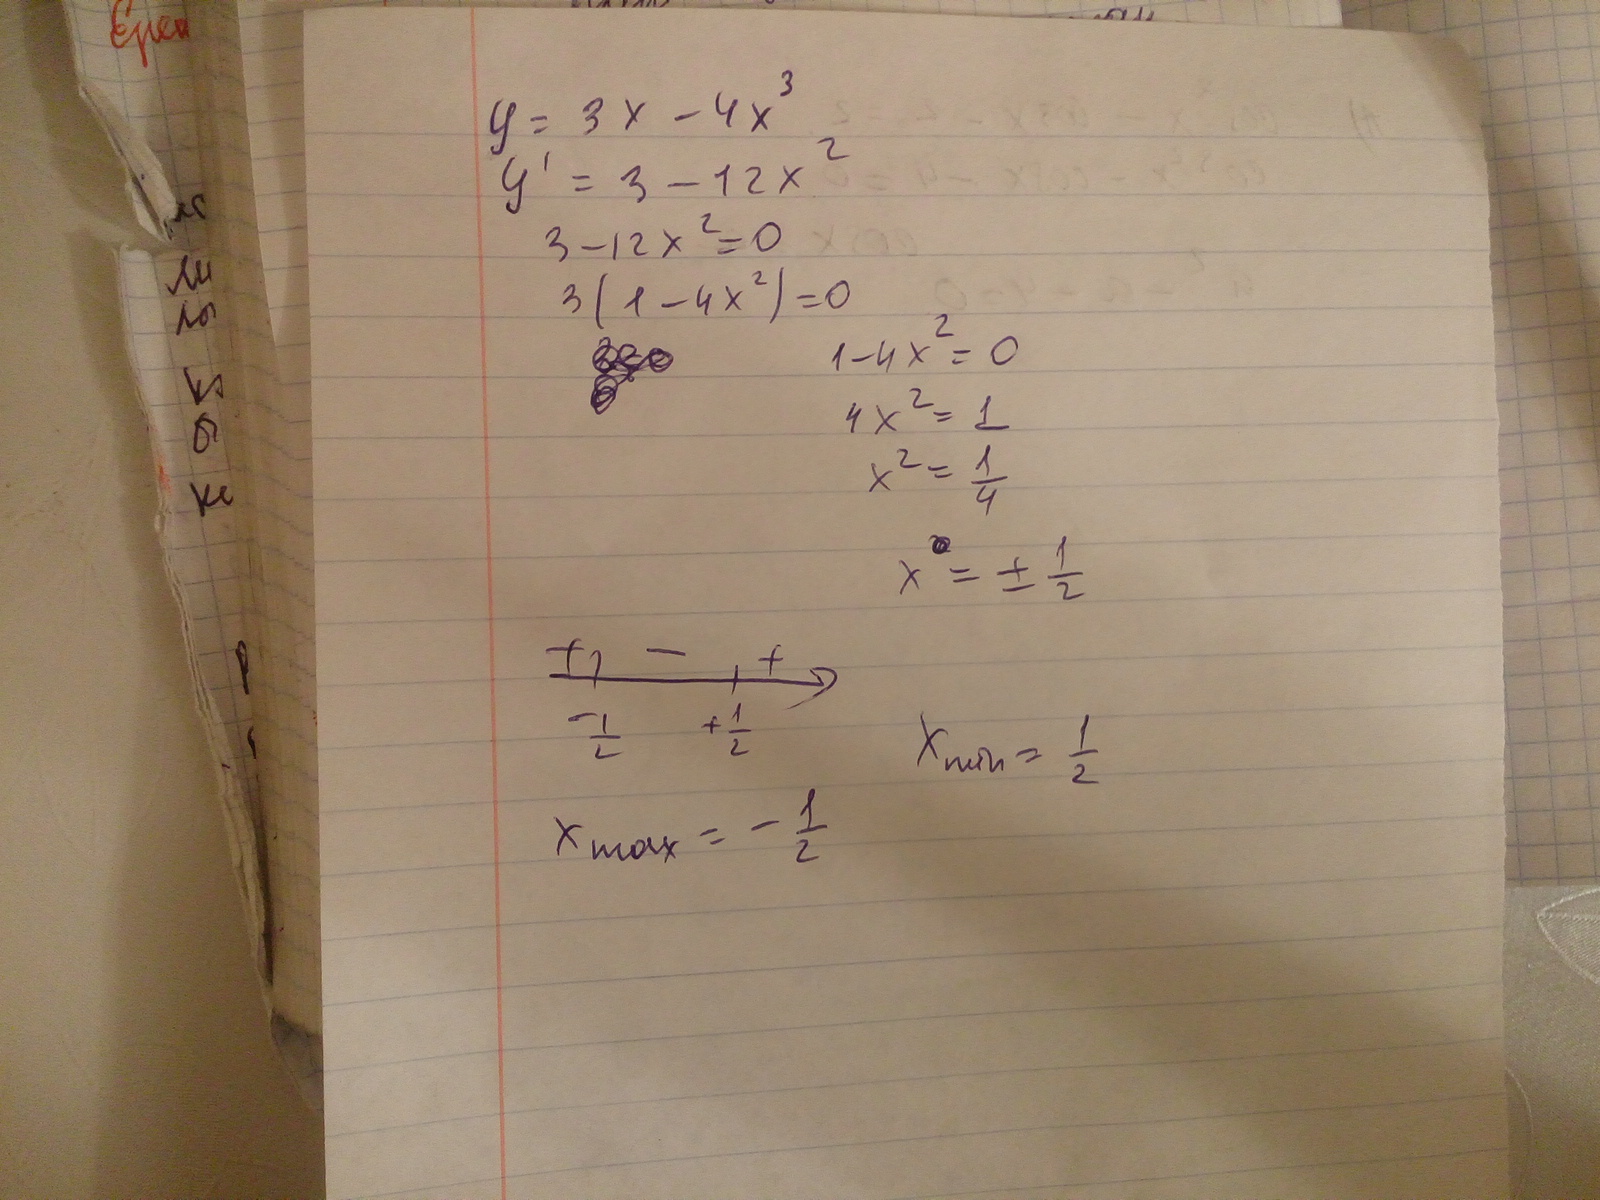 Ерем
y = 3x - 4x³
y' = 3 - 12x²
3 - 12x² = 0
3(1 - 4x²) = 0
1 - 4x² = 0
4x² = 1
x² = 1/4
x = ± 1/2
+ - +
-1/2 +1/2
x min = 1/2
x max = - 1/2